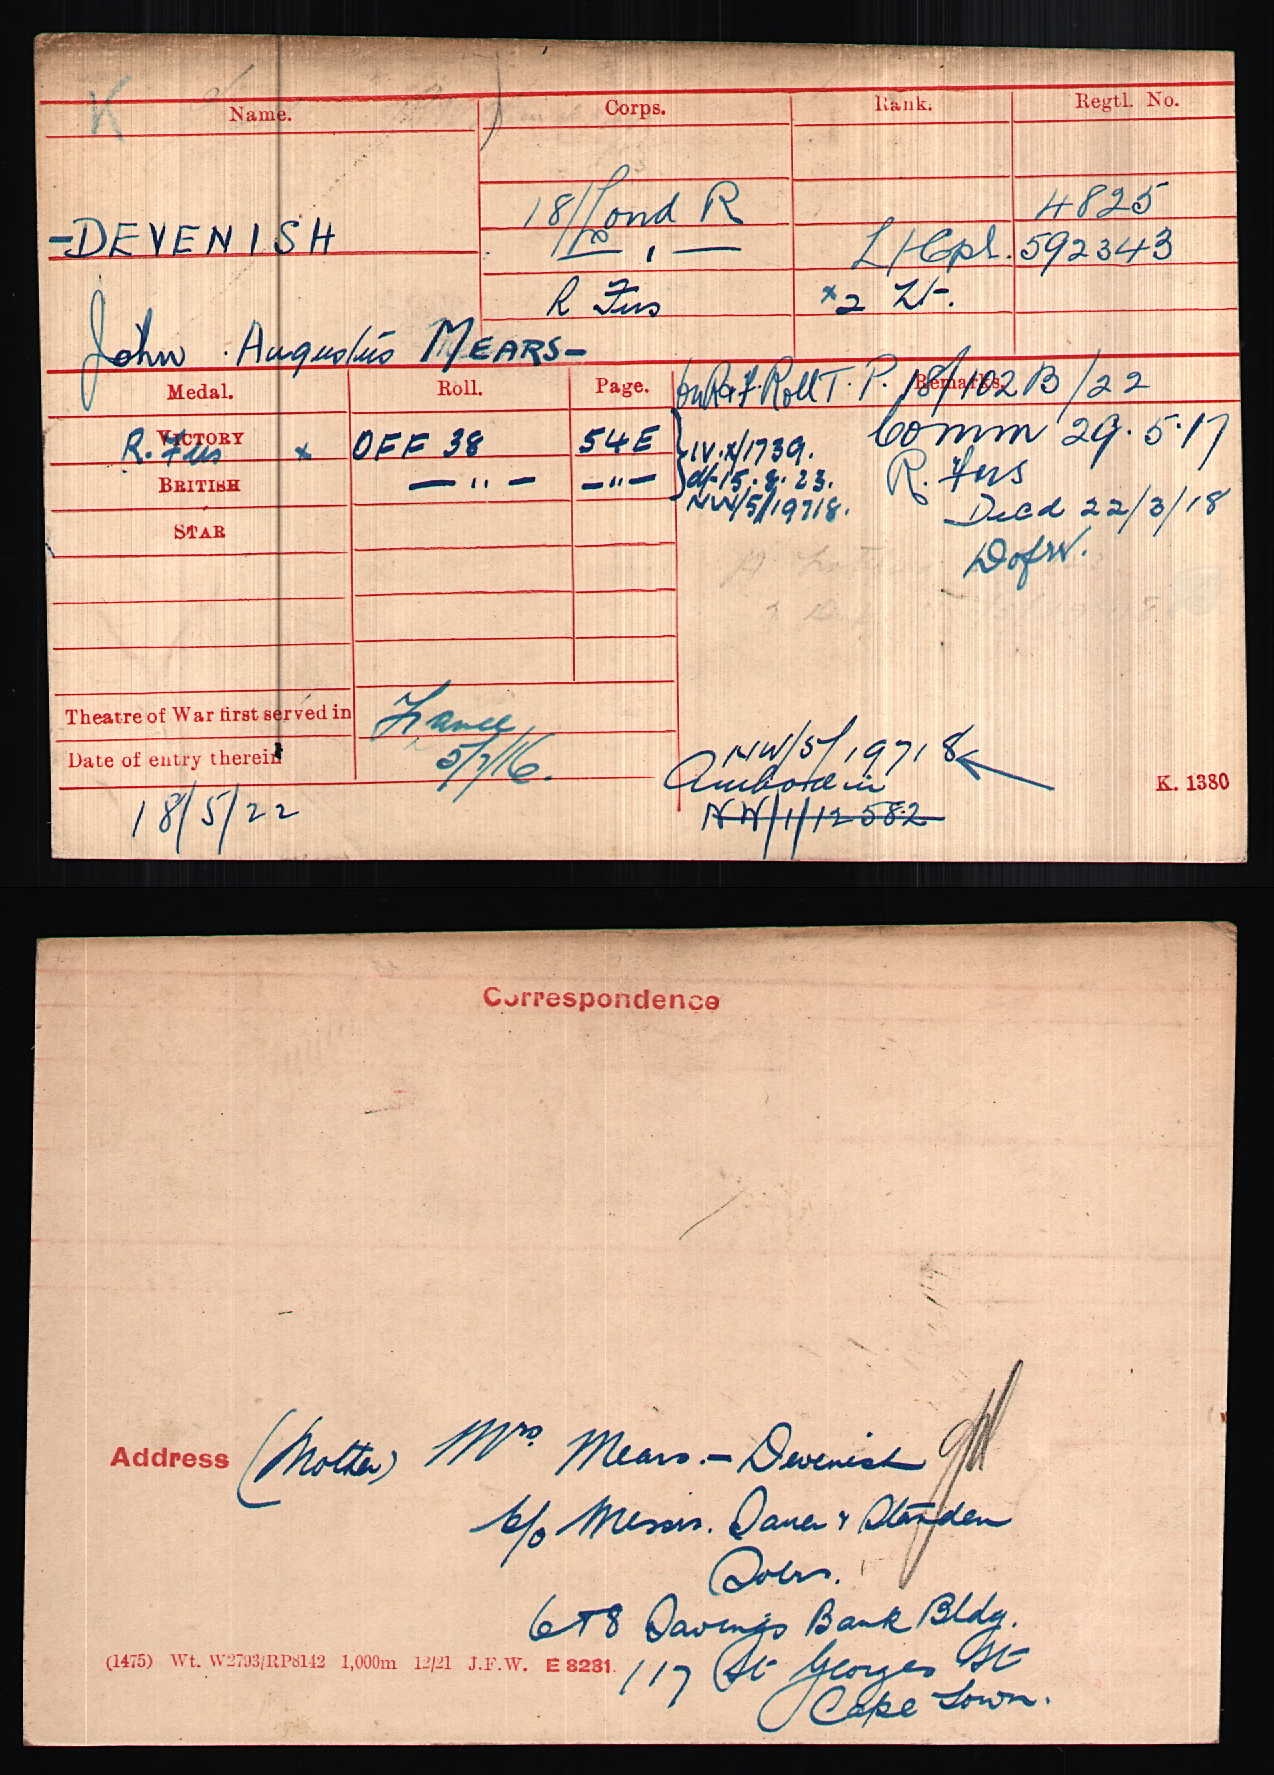 K
Name. Corps. Rank. Regtl. No.
18/Lond R 4825
-DEVENISH — " — L/Cpl. 592343
R Fus x2 Lt.
John Augustus MEARS-
Medal. Roll. Page. Remarks.
on R.F. Roll T.P. 18/102B/22
VICTORY R. Fus x OFF 38 54E } IV.X/1739. Comm 29.5.17
BRITISH — " — — " — d/-15.8.23. R. Fus
NW/5/19718. Died 22/3/18
STAR
DofW.
Theatre of War first served in France
Date of entry therein 5/7/16.
NW/5/19718
K. 1380
18/5/22
NW/1/12582
Correspondence
Address (Mother) Mrs. Mears.-Devenish
c/o Messrs. & Standen
Solrs.
6+8 Savings Bank Bldg.
(1475) Wt. W2793/RP8142 1,000m 12/21 J.F.W. E 8231.
117 St Georges St
Cape Town.